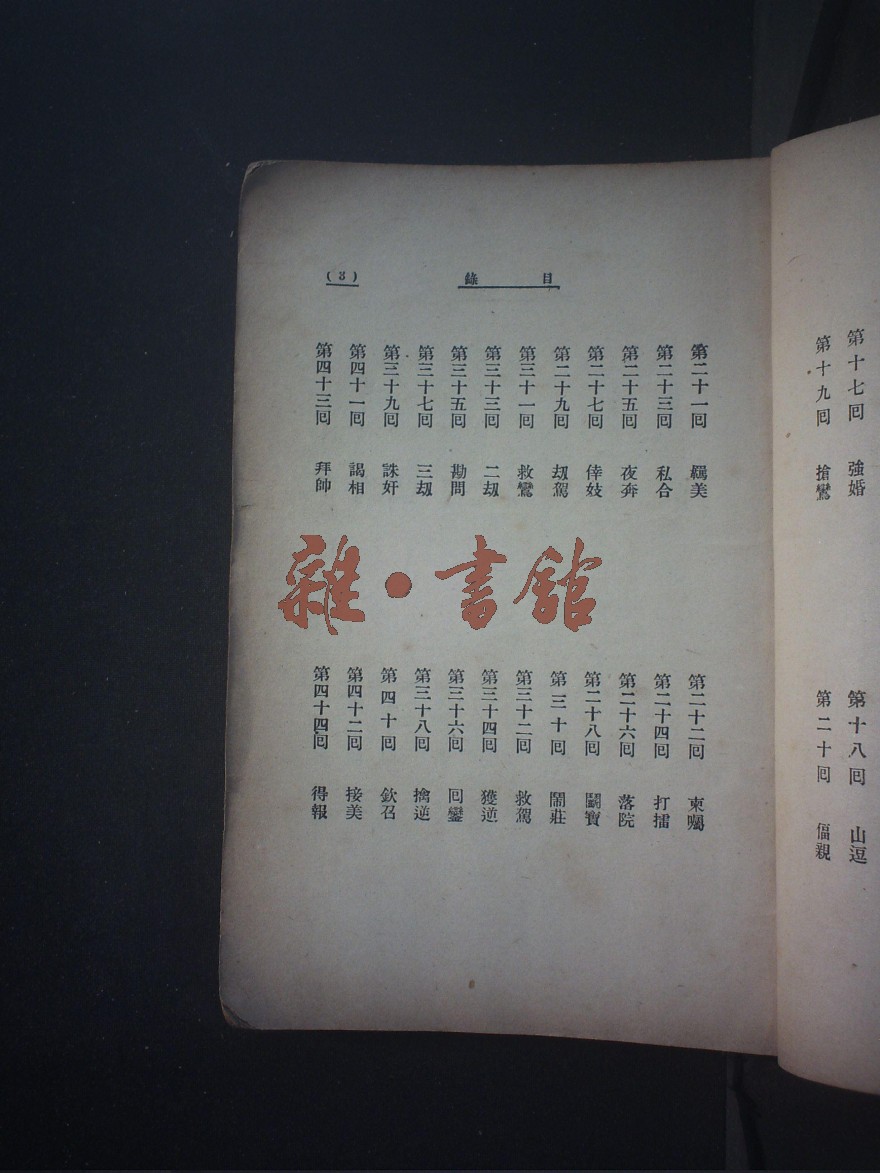 第十七回 強婚
第十八回 山逗
第十九回 搶鸞
第二十回 偪親
目錄
(3)
第二十一回 羈美
第二十二回 柬囑
第二十三回 私合
第二十四回 打擂
第二十五回 夜奔
第二十六回 落院
第二十七回 倖妓
第二十八回 鬭寶
第二十九回 刼駕
第三十回 鬧莊
第三十一回 救鸞
第三十二回 救駕
第三十三回 二刼
第三十四回 獲逆
第三十五回 勘問
第三十六回 回鑾
第三十七回 三刼
第三十八回 擒逆
第三十九回 誅奸
第四十回 欽召
第四十一回 謁相
第四十二回 接美
第四十三回 拜帥
第四十四回 得報
雜·書館